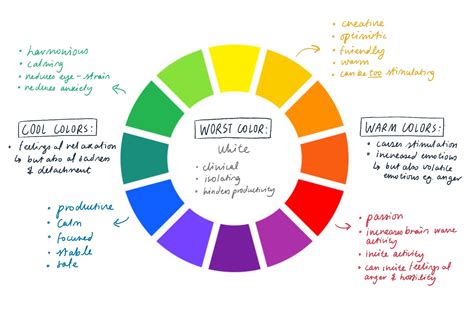 • harmonious
• calming
• reduces eye-strain
• reduces anxiety
• creative
• optimistic
• friendly
• warm
• can be too stimulating
COOL COLORS:
• feelings of relaxation
↳ but also of sadness
& detachment
WORST COLOR:
white
• clinical
• isolating
• hinders productivity
WARM COLORS:
• causes stimulation
• increased emotions
↳ but also volatile
emotions eg. anger
• productive
• calm
• focused
• stable
• safe
• passion
• increases brain wave
activity
• incite activity
• can incite feelings of
anger & hostility